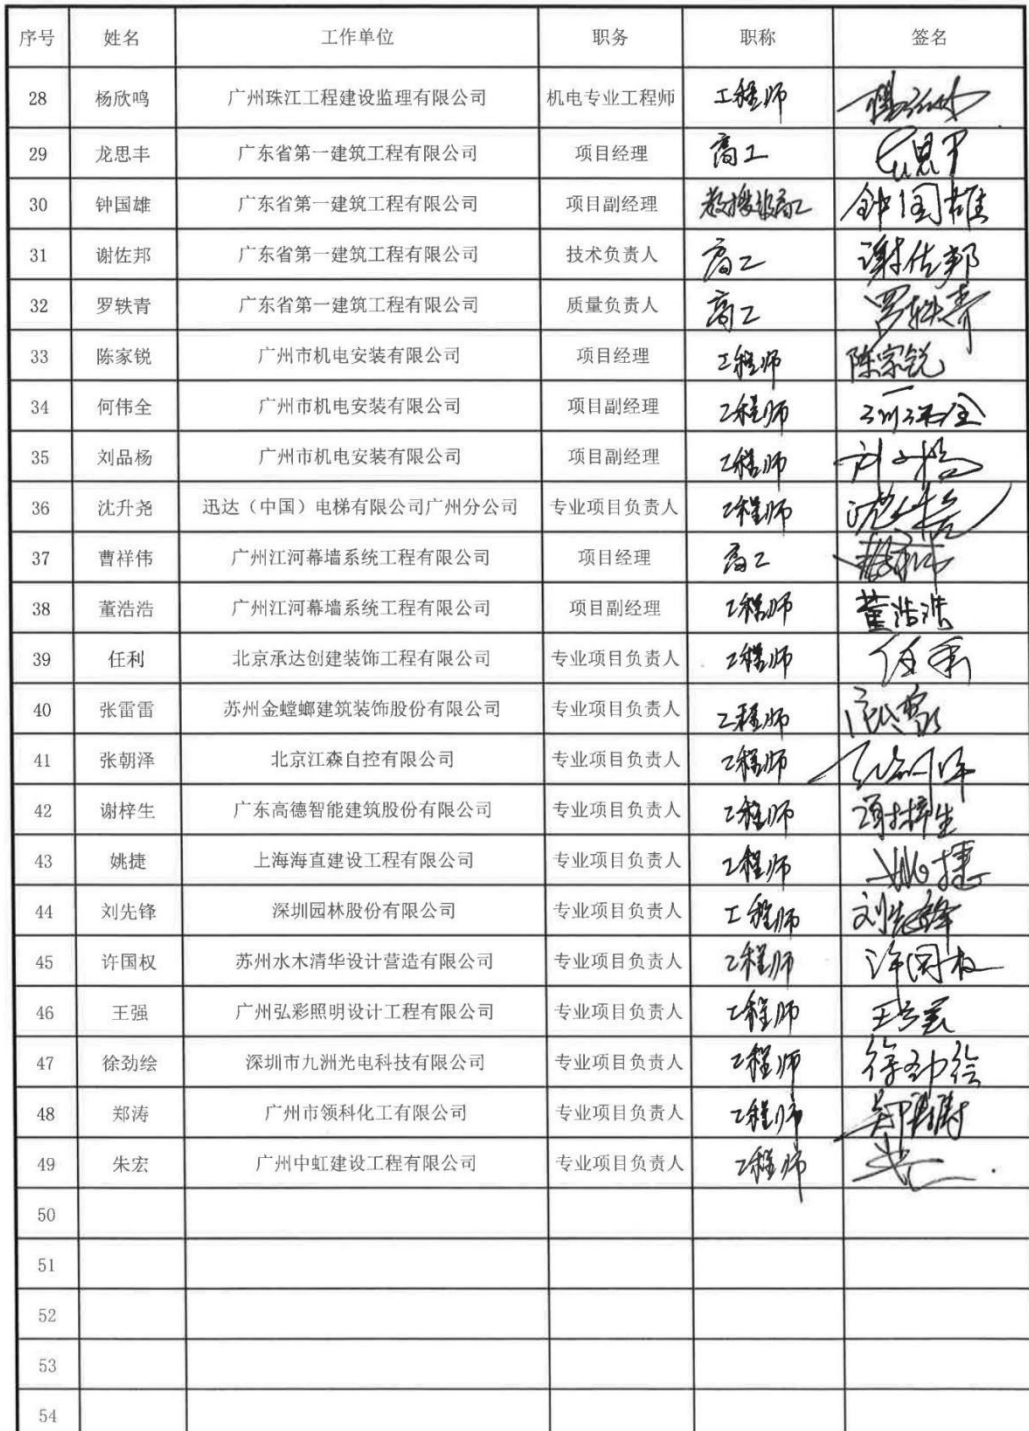 序号 姓名 工作单位 职务 职称 签名
28 杨欣鸣 广州珠江工程建设监理有限公司 机电专业工程师 工程师
29 龙思丰 广东省第一建筑工程有限公司 项目经理 高工
30 钟国雄 广东省第一建筑工程有限公司 项目副经理 教授级高工 钟国雄
31 谢佐邦 广东省第一建筑工程有限公司 技术负责人 高工 谢佐邦
32 罗轶青 广东省第一建筑工程有限公司 质量负责人 高工 罗轶青
33 陈家锐 广州市机电安装有限公司 项目经理 工程师 陈家锐
34 何伟全 广州市机电安装有限公司 项目副经理 工程师
35 刘品杨 广州市机电安装有限公司 项目副经理 工程师
36 沈升尧 迅达（中国）电梯有限公司广州分公司 专业项目负责人 工程师
37 曹祥伟 广州江河幕墙系统工程有限公司 项目经理 高工
38 董浩浩 广州江河幕墙系统工程有限公司 项目副经理 工程师 董浩浩
39 任利 北京承达创建装饰工程有限公司 专业项目负责人 工程师 任利
40 张雷雷 苏州金螳螂建筑装饰股份有限公司 专业项目负责人 工程师
41 张朝泽 北京江森自控有限公司 专业项目负责人 工程师
42 谢梓生 广东高德智能建筑股份有限公司 专业项目负责人 工程师 谢梓生
43 姚捷 上海海直建设工程有限公司 专业项目负责人 工程师 姚捷
44 刘先锋 深圳园林股份有限公司 专业项目负责人 工程师 刘先锋
45 许国权 苏州水木清华设计营造有限公司 专业项目负责人 工程师 许国权
46 王强 广州弘彩照明设计工程有限公司 专业项目负责人 工程师 王强
47 徐劲绘 深圳市九洲光电科技有限公司 专业项目负责人 工程师 徐劲绘
48 郑涛 广州市领科化工有限公司 专业项目负责人 工程师 郑涛
49 朱宏 广州中虹建设工程有限公司 专业项目负责人 工程师
50
51
52
53
54